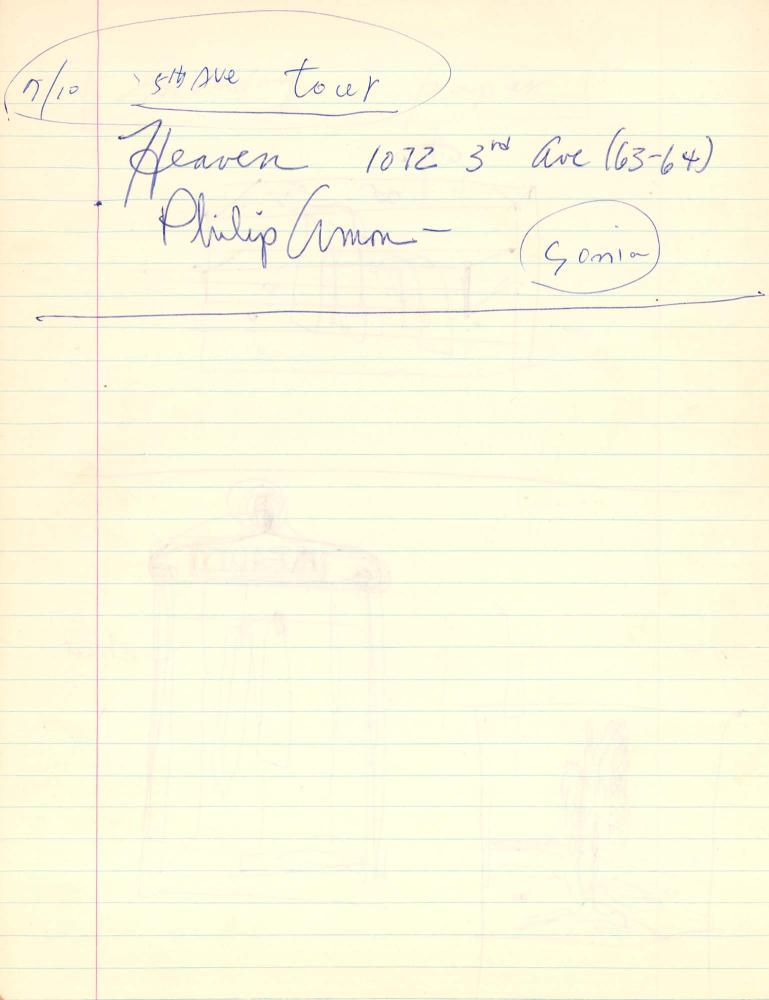 7/10 5th Ave tour
Heaven 1072 3rd Ave (63-64)
Philip Amon -
Sonia